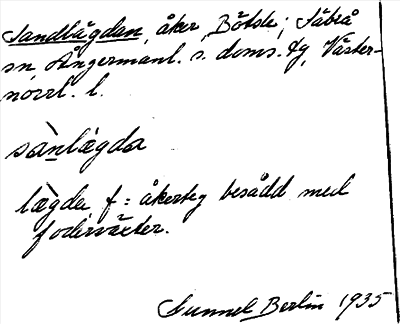 Sandlägdan, åker, Bölsle; Säbrå
sn, Ångermanl. s. doms. tg, Väster-
norrl. l.
sànlǽgda
lǽgda f = åkerteg besådd med
foderväxter.
Gunnel Berlin 1935